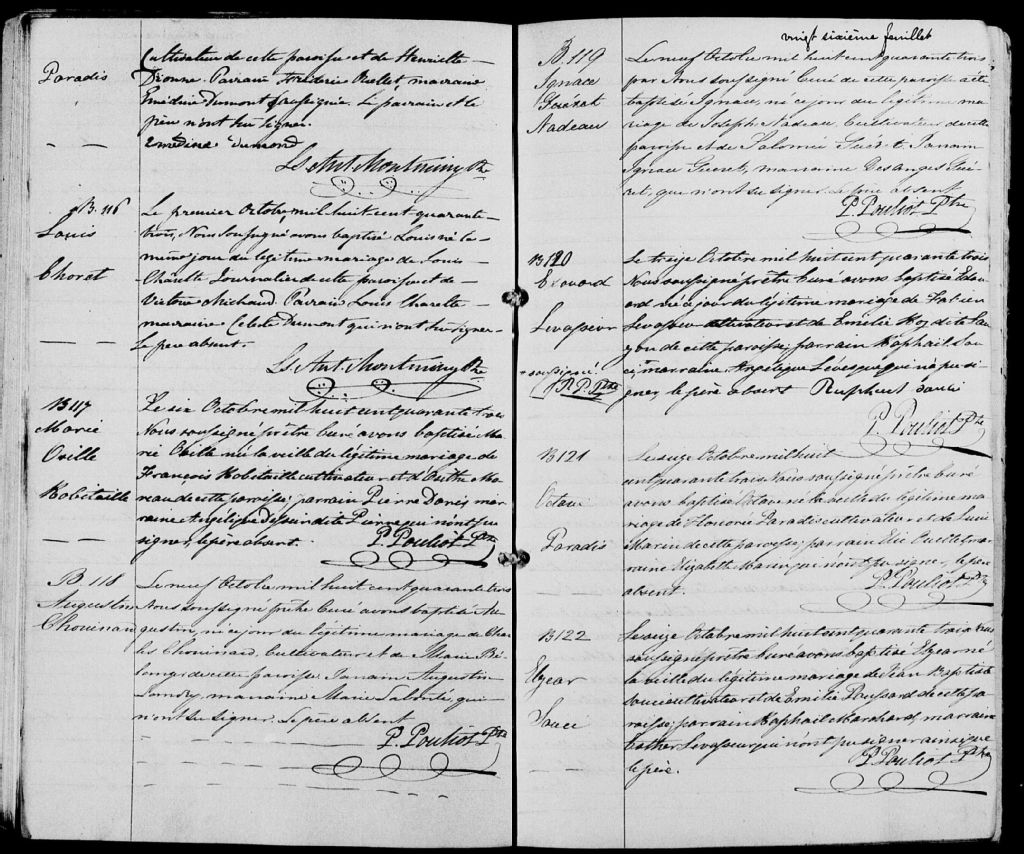 Paradis
Cultivateur de cette paroisse et de Henriette
Dionne. Parrain Frédéric Ouellet, marraine
Emédine Dumont soussignée. Le parrain et le
père n'ont su signer.
Emédine Dumond
Ls Ant. Montminy Ptre
B. 116
Louis
Choret
Le premier Octobre, mil huit cent quarante
trois, Nous soussigné avons baptisé Louis né le
même jour du légitime mariage de Louis
Charette Journalier de cette paroisse et de
Victoire Michaud. Parrain Louis Charette
marraine Celeste Dumont qui n'ont su signer
le père absent.
Ls Ant. Montminy Ptre
B 117
Marie
Orille
Robetaille
Le six Octobre mil huit cent quarante trois
Nous soussigné prêtre curé avons baptisé Ma-
rie Orille née la veille du légitime mariage de
François Robetaille cultivateur et d'Osithe Mo-
reau de cette paroisse; parrain Pierre Danis, mar-
raine Angélique dit Pierre qui n'ont pu
signer, le père absent.
P. Pouliot Ptre
B 118
Augustin
Chouinard
Le neuf Octobre mil huit cent quarante trois
Nous soussigné prêtre Curé avons baptisé Au-
gustin, né ce jour du légitime mariage de Char-
les Chouinard, Cultivateur et de Marie Bé-
langer de cette paroisse. Parrain Augustin
Landry, marraine Marie Lalonté, qui
n'ont su signer. Le père absent
P. Pouliot Ptre
vingt sixième feuillet
B. 119
Ignace
Nadeau
Le neuf Octobre mil huit cent quarante trois
par Nous soussigné Curé de cette paroisse a été
baptisé Ignace, né ce jour du légitime ma-
riage de Joseph Nadeau, Cultivateur de cette
paroisse et de Salomée Guéret. Parrain
Ignace Gueret, marraine Desanges Gué-
ret, qui n'ont su signer. Le père absent
P. Pouliot Ptre
B 120
Edouard
Levasseur
+ soussigné
P. P. Ptre
Le treize Octobre mil huit cent quarante trois
Nous soussigné prêtre curé avons baptisé Edou-
ard né ce jour du légitime mariage de Fabien
Levasseur cultivateur et de Emélie Roy dite Lau-
zon de cette paroisse; parrain Raphaïl Sou-
cy, marraine Angélique Lévesque qui n'a pu si-
gner, le père absent Raphael Souci
P. Pouliot Ptre
B 121
Octave
Paradis
Le seize Octobre mil huit
cent quarante trois Nous soussigné prêtre curé
avons baptisé Octave né la veille du légitime ma-
riage de Honorée Paradis cultivateur et de Luce
Morin de cette paroisse; parrain Elie Ouellet mar-
raine Elizabeth Morin qui n'ont pu signer, le père
absent.
P. Pouliot Ptre
B 122
Elzear
Souci
Le seize Octobre mil huit cent quarante trois Nous
soussigné prêtre curé avons baptisé Elzear né
la veille du légitime mariage de Jean Baptiste
Souci cultivateur et de Emélie Roussard de cette pa-
roisse; parrain Raphaïl Marchand, marraine
Esther Levasseur qui n'ont pu signer ainsi que
le père.
P. Pouliot Ptre